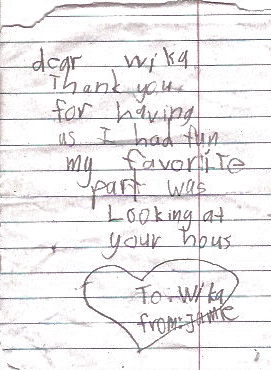 dear wika
Thank you
for having
us I had fun
my favorite
part was
Looking at
your hous
To: Wika
from: Jamie